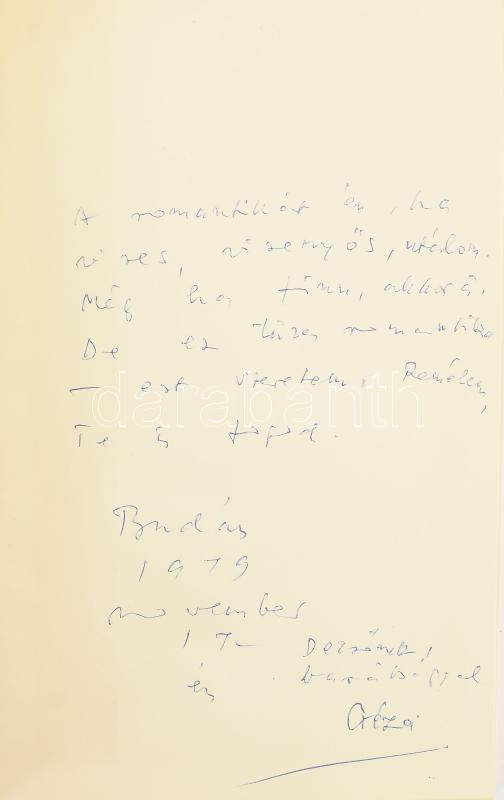 A romantikát én, ha
vizes, vizenyős, utálom.
Még ha finn, akkor is.
De ez tüzes romantika
– ezt szeretem. Remélem,
Te is fogod.
darabanth
Budán
1979
november
17-
én
Dezsőnek,
barátsággal
Géza